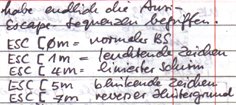 habe endlich die Ansi-
Escape-Sequenzen begriffen.
ESC [0m = normaler BS
ESC [1m = leuchtende Zeichen
ESC [4m = linierter Schirm
ESC [5m blinkende Zeichen
ESC [7m reverser Hintergrund